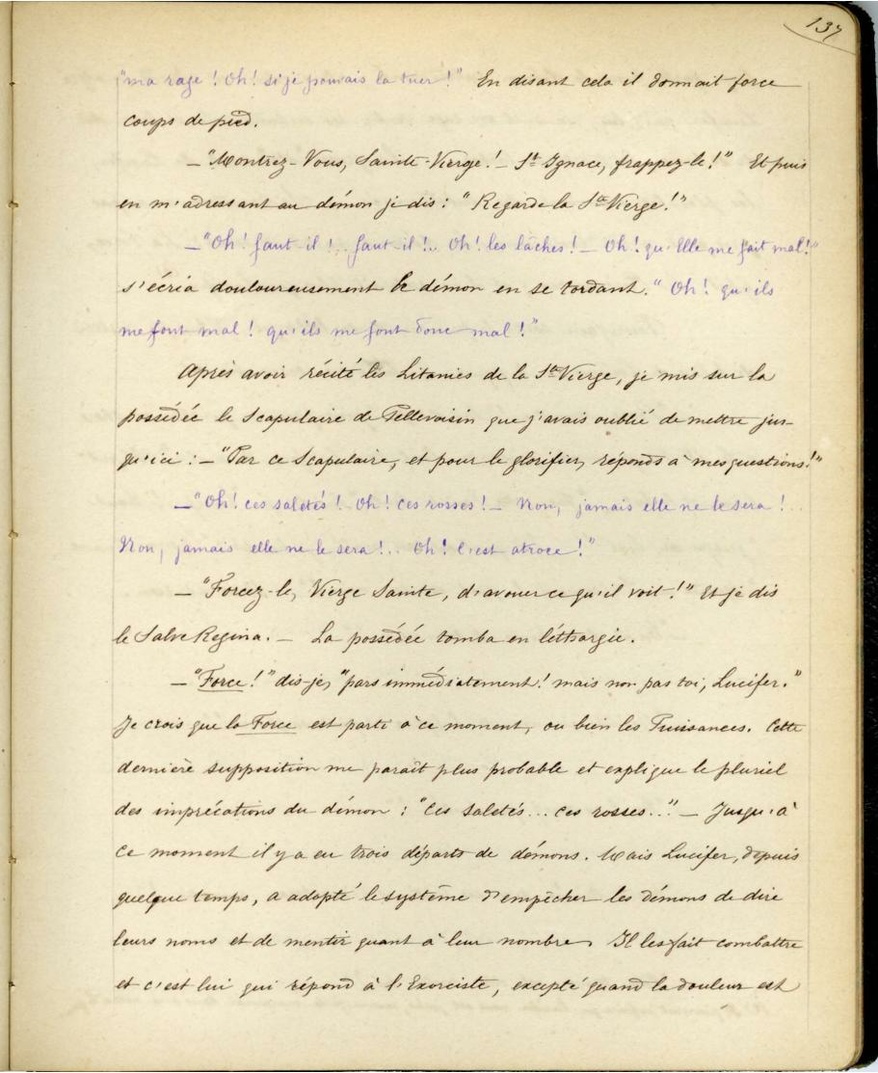 137
"ma rage ! Oh ! si je pouvais la tuer !" En disant cela il donnait force
coups de pied.
— "Montrez-Vous, Sainte-Vierge ! — St Ignace, frappez-le !" Et puis
en m'adressant au démon je dis : "Regarde la Ste Vierge !"
— "Oh ! faut-il !.. faut-il !.. Oh ! les lâches ! — Oh ! qu'Elle me fait mal !"
s'écria douloureusement le démon en se tordant. "Oh ! qu'ils
me font mal ! qu'ils me font donc mal !"
Après avoir récité les Litanies de la Ste Vierge, je mis sur la
possédée le Scapulaire de Pellevoisin que j'avais oublié de mettre jus-
qu'ici : — "Par ce Scapulaire, et pour le glorifier, réponds à mes questions !"
— "Oh ! ces saletés ! Oh ! ces rosses ! — Non, jamais elle ne le sera !..
Non, jamais elle ne le sera !.. Oh ! c'est atroce !"
— "Forcez-le, Vierge Sainte, d'avouer ce qu'il voit !" Et je dis
le Salve Regina. — La possédée tomba en léthargie.
— "Force !" dis-je, "pars immédiatement ! mais non pas toi, Lucifer."
Je crois que la Force est parti à ce moment, ou bien les Puissances. Cette
dernière supposition me paraît plus probable et explique le pluriel
des imprécations du démon : "Ces saletés... ces rosses..." — Jusqu'à
ce moment il y a eu trois départs de démons. Mais Lucifer, depuis
quelque temps, a adopté le système d'empêcher les démons de dire
leurs noms et de mentir quant à leur nombre. Il les fait combattre
et c'est lui qui répond à l'Exorciste, excepté quand la douleur est